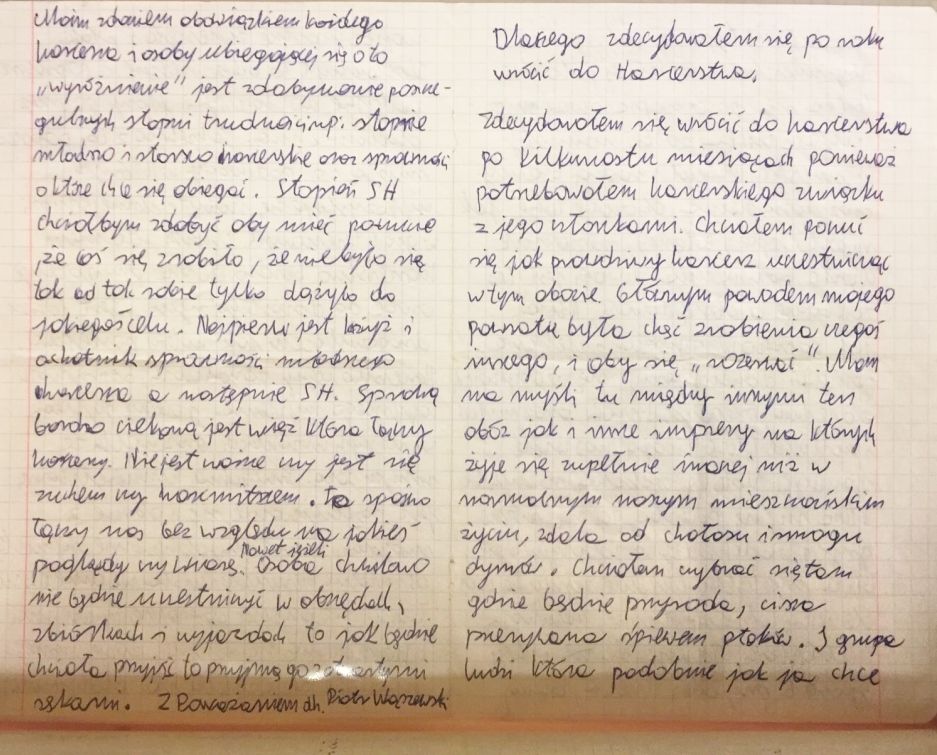 Moim zdaniem obowiązkiem każdego
harcerza i osoby ubiegającej się o to
„wyróżnienie" jest zdobywanie poszcze-
gulnych stopni trudności np. stopnie
młodzo i starszo harcerskie oraz sprawności
o które chce się obiegać. Stopień SH
chciałbym zdobyć aby mieć poczucie
, że coś się zrobiło, że nie było się
tak od tak sobie tylko dążyło do
jakiegoś celu. Najpierw jest krzyż i
ochotnik sprawności młodszego
harcerza a następnie SH. Sprawą
bardzo ciekawą jest więź która łączy
harcerzy. Nie jest ważne czy jest się
zuchem czy harcmistrzem. To spójno
łączy nas bez względu na jakieś
poglądy czy wiarę. Nawet jeżeli Osoba chwilowo
nie będzie uczestniczyć w obrzędach,
zbiórkach i wyjazdach to jak będzie
chciała przyjść to przyjmą go z otwartymi
rękami. Z Poważaniem dh. Piotr Wąszewski
Dlaczego zdecydowałem się po roku
wrócić do Harcerstwa.
Zdecydowałem się wrócić do harcerstwa
po kilkunastu miesiącach ponieważ
potrzebowałem harcerskiego związku
z jego członkami. Chciałem poczuć
się jak prawdziwy harcerz uczestnicząc
w tym obozie. Głównym powodem mojego
powrotu była chęć zrobienia czegoś
innego, i aby się „rozerwać". Mam
na myśli tu między innymi ten
obóz jak i inne imprezy na których
żyje się zupełnie inaczej niż w
normalnym naszym mieszczańskim
życiu, zdala od chałasu i smogu
dymów. Chciałem wybrać się tam
gdzie będzie przyroda, cisza
przerywana śpiewem ptaków. I grupa
ludzi która podobnie jak ja chce